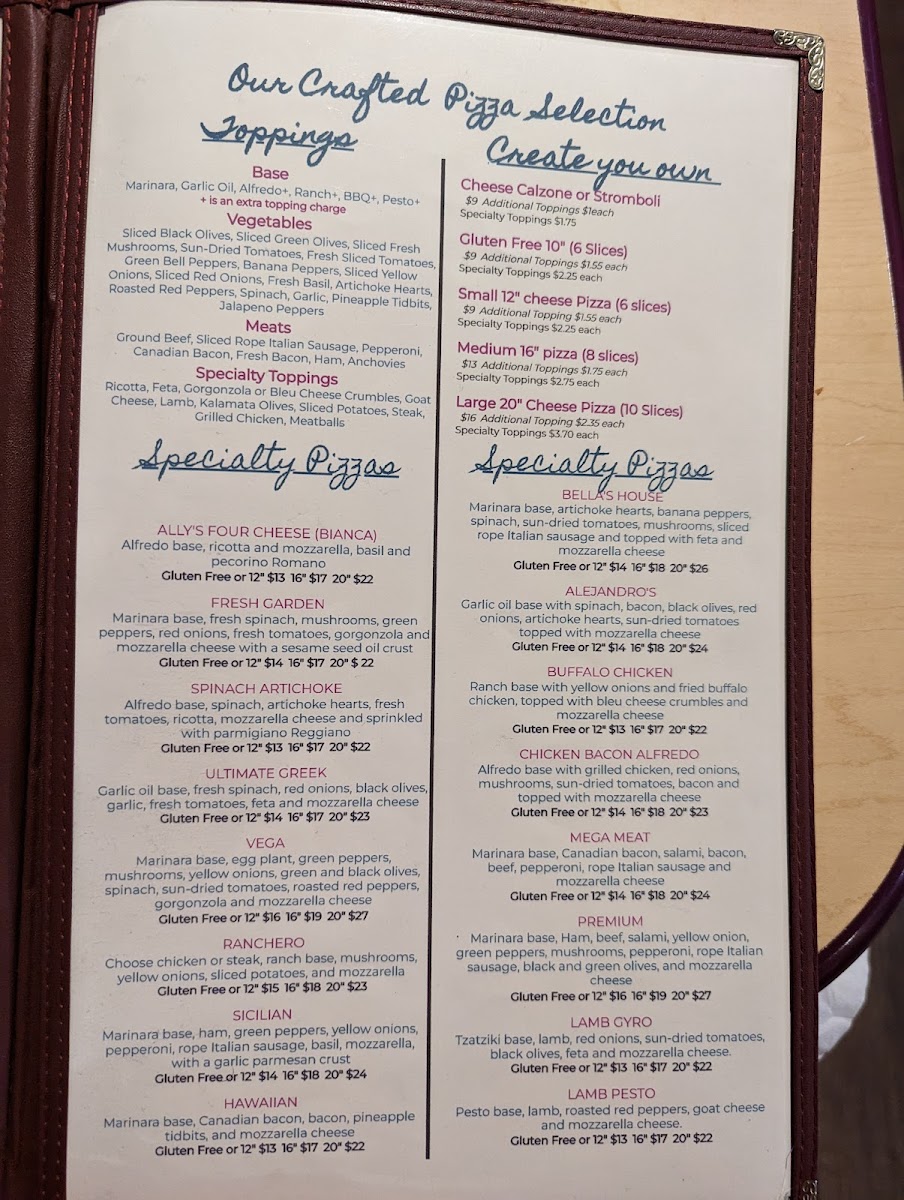 Our Crafted Pizza Selection
Toppings
Base
Marinara, Garlic Oil, Alfredo+, Ranch+, BBQ+, Pesto+
+ is an extra topping charge
Vegetables
Sliced Black Olives, Sliced Green Olives, Sliced Fresh
Mushrooms, Sun-Dried Tomatoes, Fresh Sliced Tomatoes,
Green Bell Peppers, Banana Peppers, Sliced Yellow
Onions, Sliced Red Onions, Fresh Basil, Artichoke Hearts,
Roasted Red Peppers, Spinach, Garlic, Pineapple Tidbits,
Jalapeno Peppers
Meats
Ground Beef, Sliced Rope Italian Sausage, Pepperoni,
Canadian Bacon, Fresh Bacon, Ham, Anchovies
Specialty Toppings
Ricotta, Feta, Gorgonzola or Bleu Cheese Crumbles, Goat
Cheese, Lamb, Kalamata Olives, Sliced Potatoes, Steak,
Grilled Chicken, Meatballs
Specialty Pizzas
ALLY'S FOUR CHEESE (BIANCA)
Alfredo base, ricotta and mozzarella, basil and
pecorino Romano
Gluten Free or 12" $13 16" $17 20" $22
FRESH GARDEN
Marinara base, fresh spinach, mushrooms, green
peppers, red onions, fresh tomatoes, gorgonzola and
mozzarella cheese with a sesame seed oil crust
Gluten Free or 12" $14 16" $17 20" $ 22
SPINACH ARTICHOKE
Alfredo base, spinach, artichoke hearts, fresh
tomatoes, ricotta, mozzarella cheese and sprinkled
with parmigiano Reggiano
Gluten Free or 12" $13 16" $17 20" $22
ULTIMATE GREEK
Garlic oil base, fresh spinach, red onions, black olives,
garlic, fresh tomatoes, feta and mozzarella cheese
Gluten Free or 12" $14 16" $17 20" $23
VEGA
Marinara base, egg plant, green peppers,
mushrooms, yellow onions, green and black olives,
spinach, sun-dried tomatoes, roasted red peppers,
gorgonzola and mozzarella cheese
Gluten Free or 12" $16 16" $19 20" $27
RANCHERO
Choose chicken or steak, ranch base, mushrooms,
yellow onions, sliced potatoes, and mozzarella
Gluten Free or 12" $15 16" $18 20" $23
SICILIAN
Marinara base, ham, green peppers, yellow onions,
pepperoni, rope Italian sausage, basil, mozzarella,
with a garlic parmesan crust
Gluten Free or 12" $14 16" $18 20" $24
HAWAIIAN
Marinara base, Canadian bacon, bacon, pineapple
tidbits, and mozzarella cheese
Gluten Free or 12" $13 16" $17 20" $22
Create you own
Cheese Calzone or Stromboli
$9 Additional Toppings $1each
Specialty Toppings $1.75
Gluten Free 10" (6 Slices)
$9 Additional Toppings $1.55 each
Specialty Toppings $2.25 each
Small 12" cheese Pizza (6 slices)
$9 Additional Topping $1.55 each
Specialty Toppings $2.25 each
Medium 16" pizza (8 slices)
$13 Additional Toppings $1.75 each
Specialty Toppings $2.75 each
Large 20" Cheese Pizza (10 Slices)
$16 Additional Topping $2.35 each
Specialty Toppings $3.70 each
Specialty Pizzas
BELLA'S HOUSE
Marinara base, artichoke hearts, banana peppers,
spinach, sun-dried tomatoes, mushrooms, sliced
rope Italian sausage and topped with feta and
mozzarella cheese
Gluten Free or 12" $14 16" $18 20" $26
ALEJANDRO'S
Garlic oil base with spinach, bacon, black olives, red
onions, artichoke hearts, sun-dried tomatoes
topped with mozzarella cheese
Gluten Free or 12" $14 16" $18 20" $24
BUFFALO CHICKEN
Ranch base with yellow onions and fried buffalo
chicken, topped with bleu cheese crumbles and
mozzarella cheese
Gluten Free or 12" $13 16" $17 20" $22
CHICKEN BACON ALFREDO
Alfredo base with grilled chicken, red onions,
mushrooms, sun-dried tomatoes, bacon and
topped with mozzarella cheese
Gluten Free or 12" $14 16" $18 20" $23
MEGA MEAT
Marinara base, Canadian bacon, salami, bacon,
beef, pepperoni, rope Italian sausage and
mozzarella cheese
Gluten Free or 12" $14 16" $18 20" $24
PREMIUM
Marinara base, Ham, beef, salami, yellow onion,
green peppers, mushrooms, pepperoni, rope Italian
sausage, black and green olives, and mozzarella
cheese
Gluten Free or 12" $16 16" $19 20" $27
LAMB GYRO
Tzatziki base, lamb, red onions, sun-dried tomatoes,
black olives, feta and mozzarella cheese.
Gluten Free or 12" $13 16" $17 20" $22
LAMB PESTO
Pesto base, lamb, roasted red peppers, goat cheese
and mozzarella cheese.
Gluten Free or 12" $13 16" $17 20" $22